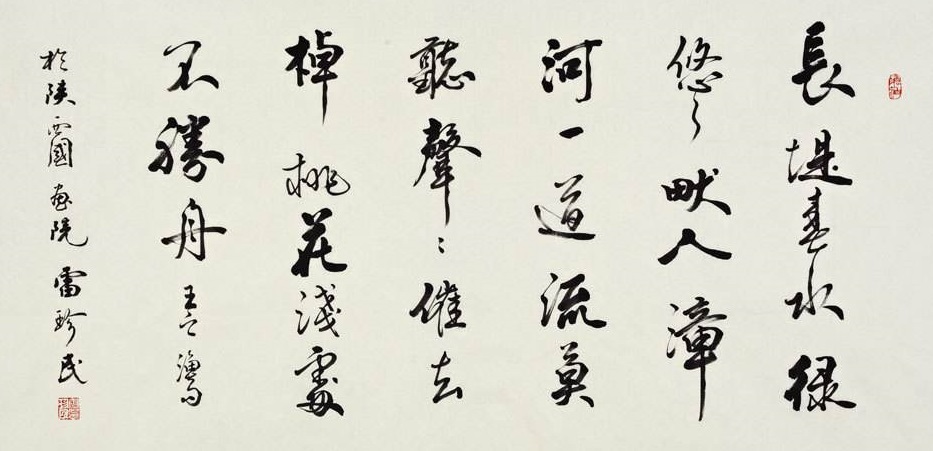 長堤春水綠
悠々畎入漳
河一道流莫
聽聲々催去
棹桃花淺處
不勝舟 王之渙句
於陝西國畫院 雷珍民